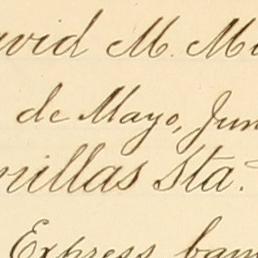 avid M. M
de Mayo, Jun
nillas Sta.
Express ban